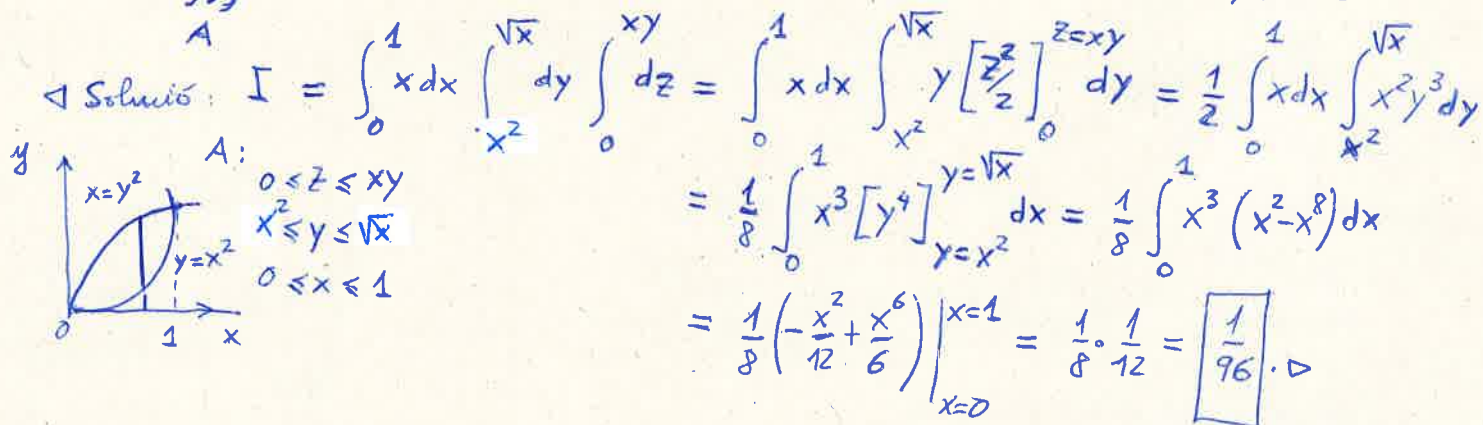 A
◁ Solució: I = ∫₀¹ x dx ∫_{x²}^{√x} dy ∫₀^{xy} dz = ∫₀¹ x dx ∫_{x²}^{√x} y [z²/2]₀^{z=xy} dy = 1/2 ∫₀¹ x dx ∫_{x²}^{√x} x²y³ dy
y
A:
x=y²
0 ≤ z ≤ xy
x² ≤ y ≤ √x
y=x²
0 ≤ x ≤ 1
0 1 x
= 1/8 ∫₀¹ x³ [y⁴]_{y=x²}^{y=√x} dx = 1/8 ∫₀¹ x³ (x²-x⁸) dx
= 1/8 (-x²/12 + x⁶/6) |_{x=0}^{x=1} = 1/8 · 1/12 = 1/96 . ▷